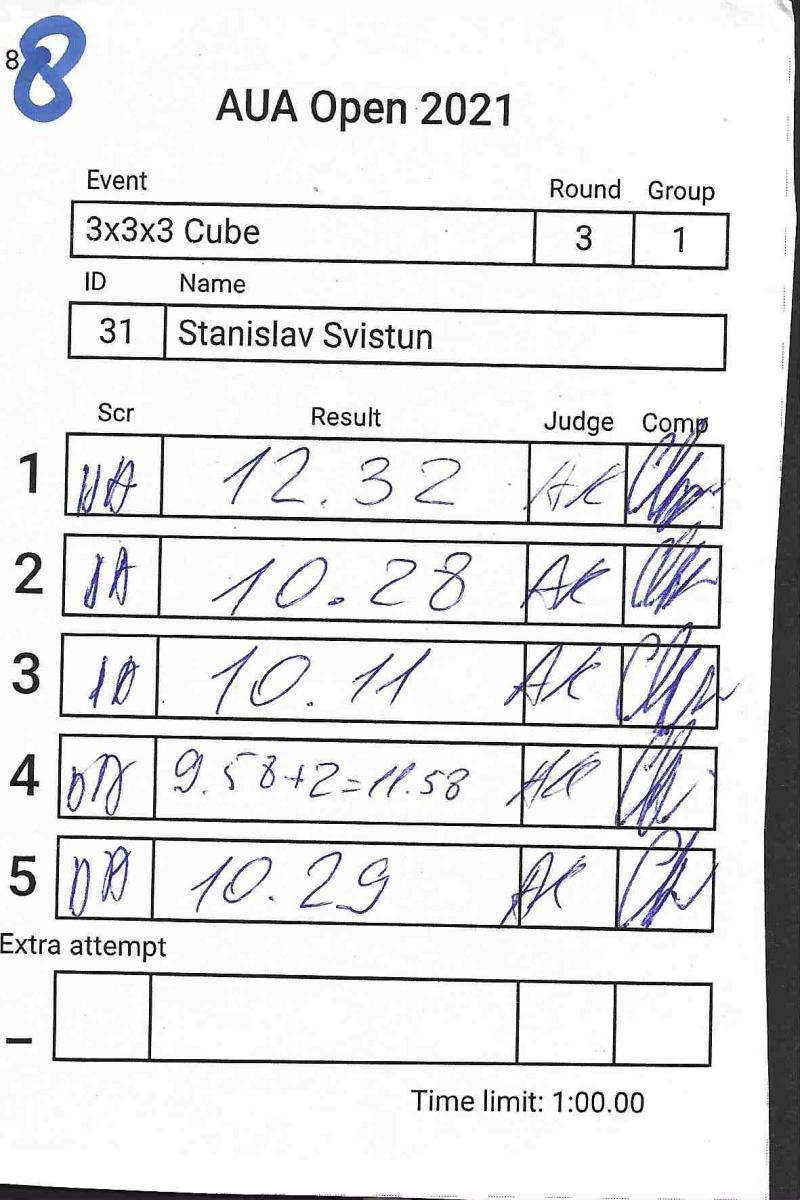 8 8
AUA Open 2021
Event Round Group
3x3x3 Cube 3 1
ID Name
31 Stanislav Svistun
Scr Result Judge Comp
1 12.32 AK
2 10.28 AK
3 10.11 AK
4 9.58+2=11.58 AK
5 10.29 AK
Extra attempt
–
Time limit: 1:00.00